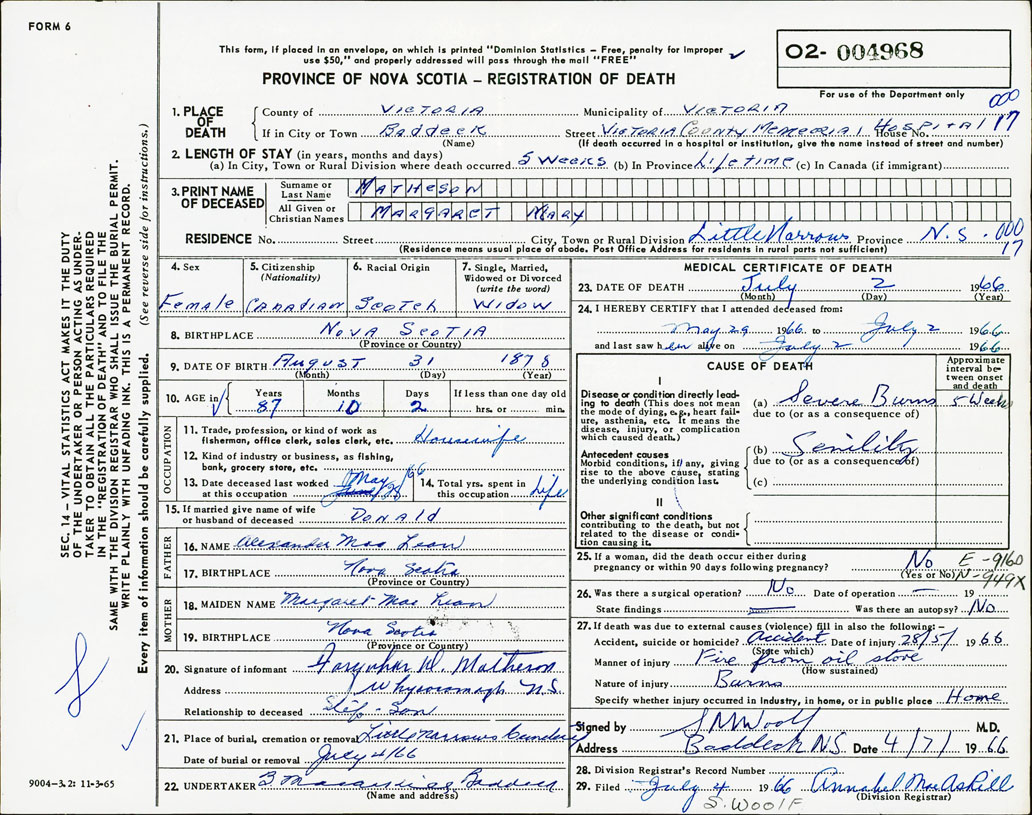 FORM 6
This form, if placed in an envelope, on which is printed "Dominion Statistics – Free, penalty for improper
use $50," and properly addressed will pass through the mail "FREE"
PROVINCE OF NOVA SCOTIA – REGISTRATION OF DEATH
02- 004968
For use of the Department only
000
17
1. PLACE OF DEATH
County of VICTORIA Municipality of VICTORIA
If in City or Town Baddeck Street VICTORIA COUNTY MEMORIAL HOSPITAL House No.
(Name) (If death occurred in a hospital or institution, give the name instead of street and number)
2. LENGTH OF STAY (in years, months and days)
(a) In City, Town or Rural Division where death occurred 5 weeks (b) In Province Lifetime (c) In Canada (if immigrant)
3. PRINT NAME OF DECEASED
Surname or Last Name MATHESON
All Given or Christian Names MARGARET MARY
RESIDENCE No. Street City, Town or Rural Division Little Narrows Province N.S. 000
17
(Residence means usual place of abode. Post Office Address for residents in rural parts not sufficient)
4. Sex Female
5. Citizenship (Nationality) Canadian
6. Racial Origin Scotch
7. Single, Married, Widowed or Divorced (write the word) Widow
8. BIRTHPLACE NOVA SCOTIA
(Province or Country)
9. DATE OF BIRTH August 31 1878
(Month) (Day) (Year)
10. AGE in Years 87 Months 10 Days 2 If less than one day old hrs. or min.
OCCUPATION
11. Trade, profession, or kind of work as fisherman, office clerk, sales clerk, etc. Housewife
12. Kind of industry or business, as fishing, bank, grocery store, etc.
13. Date deceased last worked at this occupation May 28/66
14. Total yrs. spent in this occupation Life
15. If married give name of wife or husband of deceased Donald
FATHER
16. NAME Alexander Mac Lean
17. BIRTHPLACE Nova Scotia
(Province or Country)
MOTHER
18. MAIDEN NAME Margaret Mac Lean
19. BIRTHPLACE Nova Scotia
(Province or Country)
20. Signature of informant Farquhar D. Matheson
Address Whycocomagh N.S.
Relationship to deceased Step-Son
21. Place of burial, cremation or removal Little Narrows
Date of burial or removal July 4/66
22. UNDERTAKER Baddeck
(Name and address)
MEDICAL CERTIFICATE OF DEATH
23. DATE OF DEATH July 2 1966
(Month) (Day) (Year)
24. I HEREBY CERTIFY that I attended deceased from:
May 29 1966 to July 2 1966
and last saw her alive on July 2 1966
CAUSE OF DEATH
Approximate interval between onset and death
I
Disease or condition directly leading to death (This does not mean the mode of dying, e.g., heart failure, asthenia, etc. It means the disease, injury, or complication which caused death.)
(a) Severe Burns 5 Weeks
due to (or as a consequence of)
Antecedent causes
Morbid conditions, if any, giving rise to the above cause, stating the underlying condition last.
(b) Senility
due to (or as a consequence of)
(c)
II
Other significant conditions contributing to the death, but not related to the disease or condition causing it.
25. If a woman, did the death occur either during pregnancy or within 90 days following pregnancy? No
(Yes or No)
E-9160
N-949X
26. Was there a surgical operation? No Date of operation — 19
State findings Was there an autopsy? No
27. If death was due to external causes (violence) fill in also the following:–
Accident, suicide or homicide? Accident Date of injury 28/5/ 1966
(State which)
Manner of injury Fire from oil stove
(How sustained)
Nature of injury Burns
Specify whether injury occurred in industry, in home, or in public place Home
Signed by S M Woolf M.D.
Address Baddeck N S Date 4/7/ 1966
28. Division Registrar's Record Number
29. Filed July 4 1966 Annabel MacAskill
(Division Registrar)
S. WOOLF
SEC. 14 – VITAL STATISTICS ACT MAKES IT THE DUTY
OF THE UNDERTAKER OR PERSON ACTING AS UNDER-
TAKER TO OBTAIN ALL THE PARTICULARS REQUIRED
IN THE "REGISTRATION OF DEATH" AND TO FILE THE
SAME WITH THE DIVISION REGISTRAR WHO SHALL ISSUE THE BURIAL PERMIT.
WRITE PLAINLY WITH UNFADING INK. THIS IS A PERMANENT RECORD.
Every item of information should be carefully supplied. (See reverse side for instructions.)
9004-3.2: 11-3-65